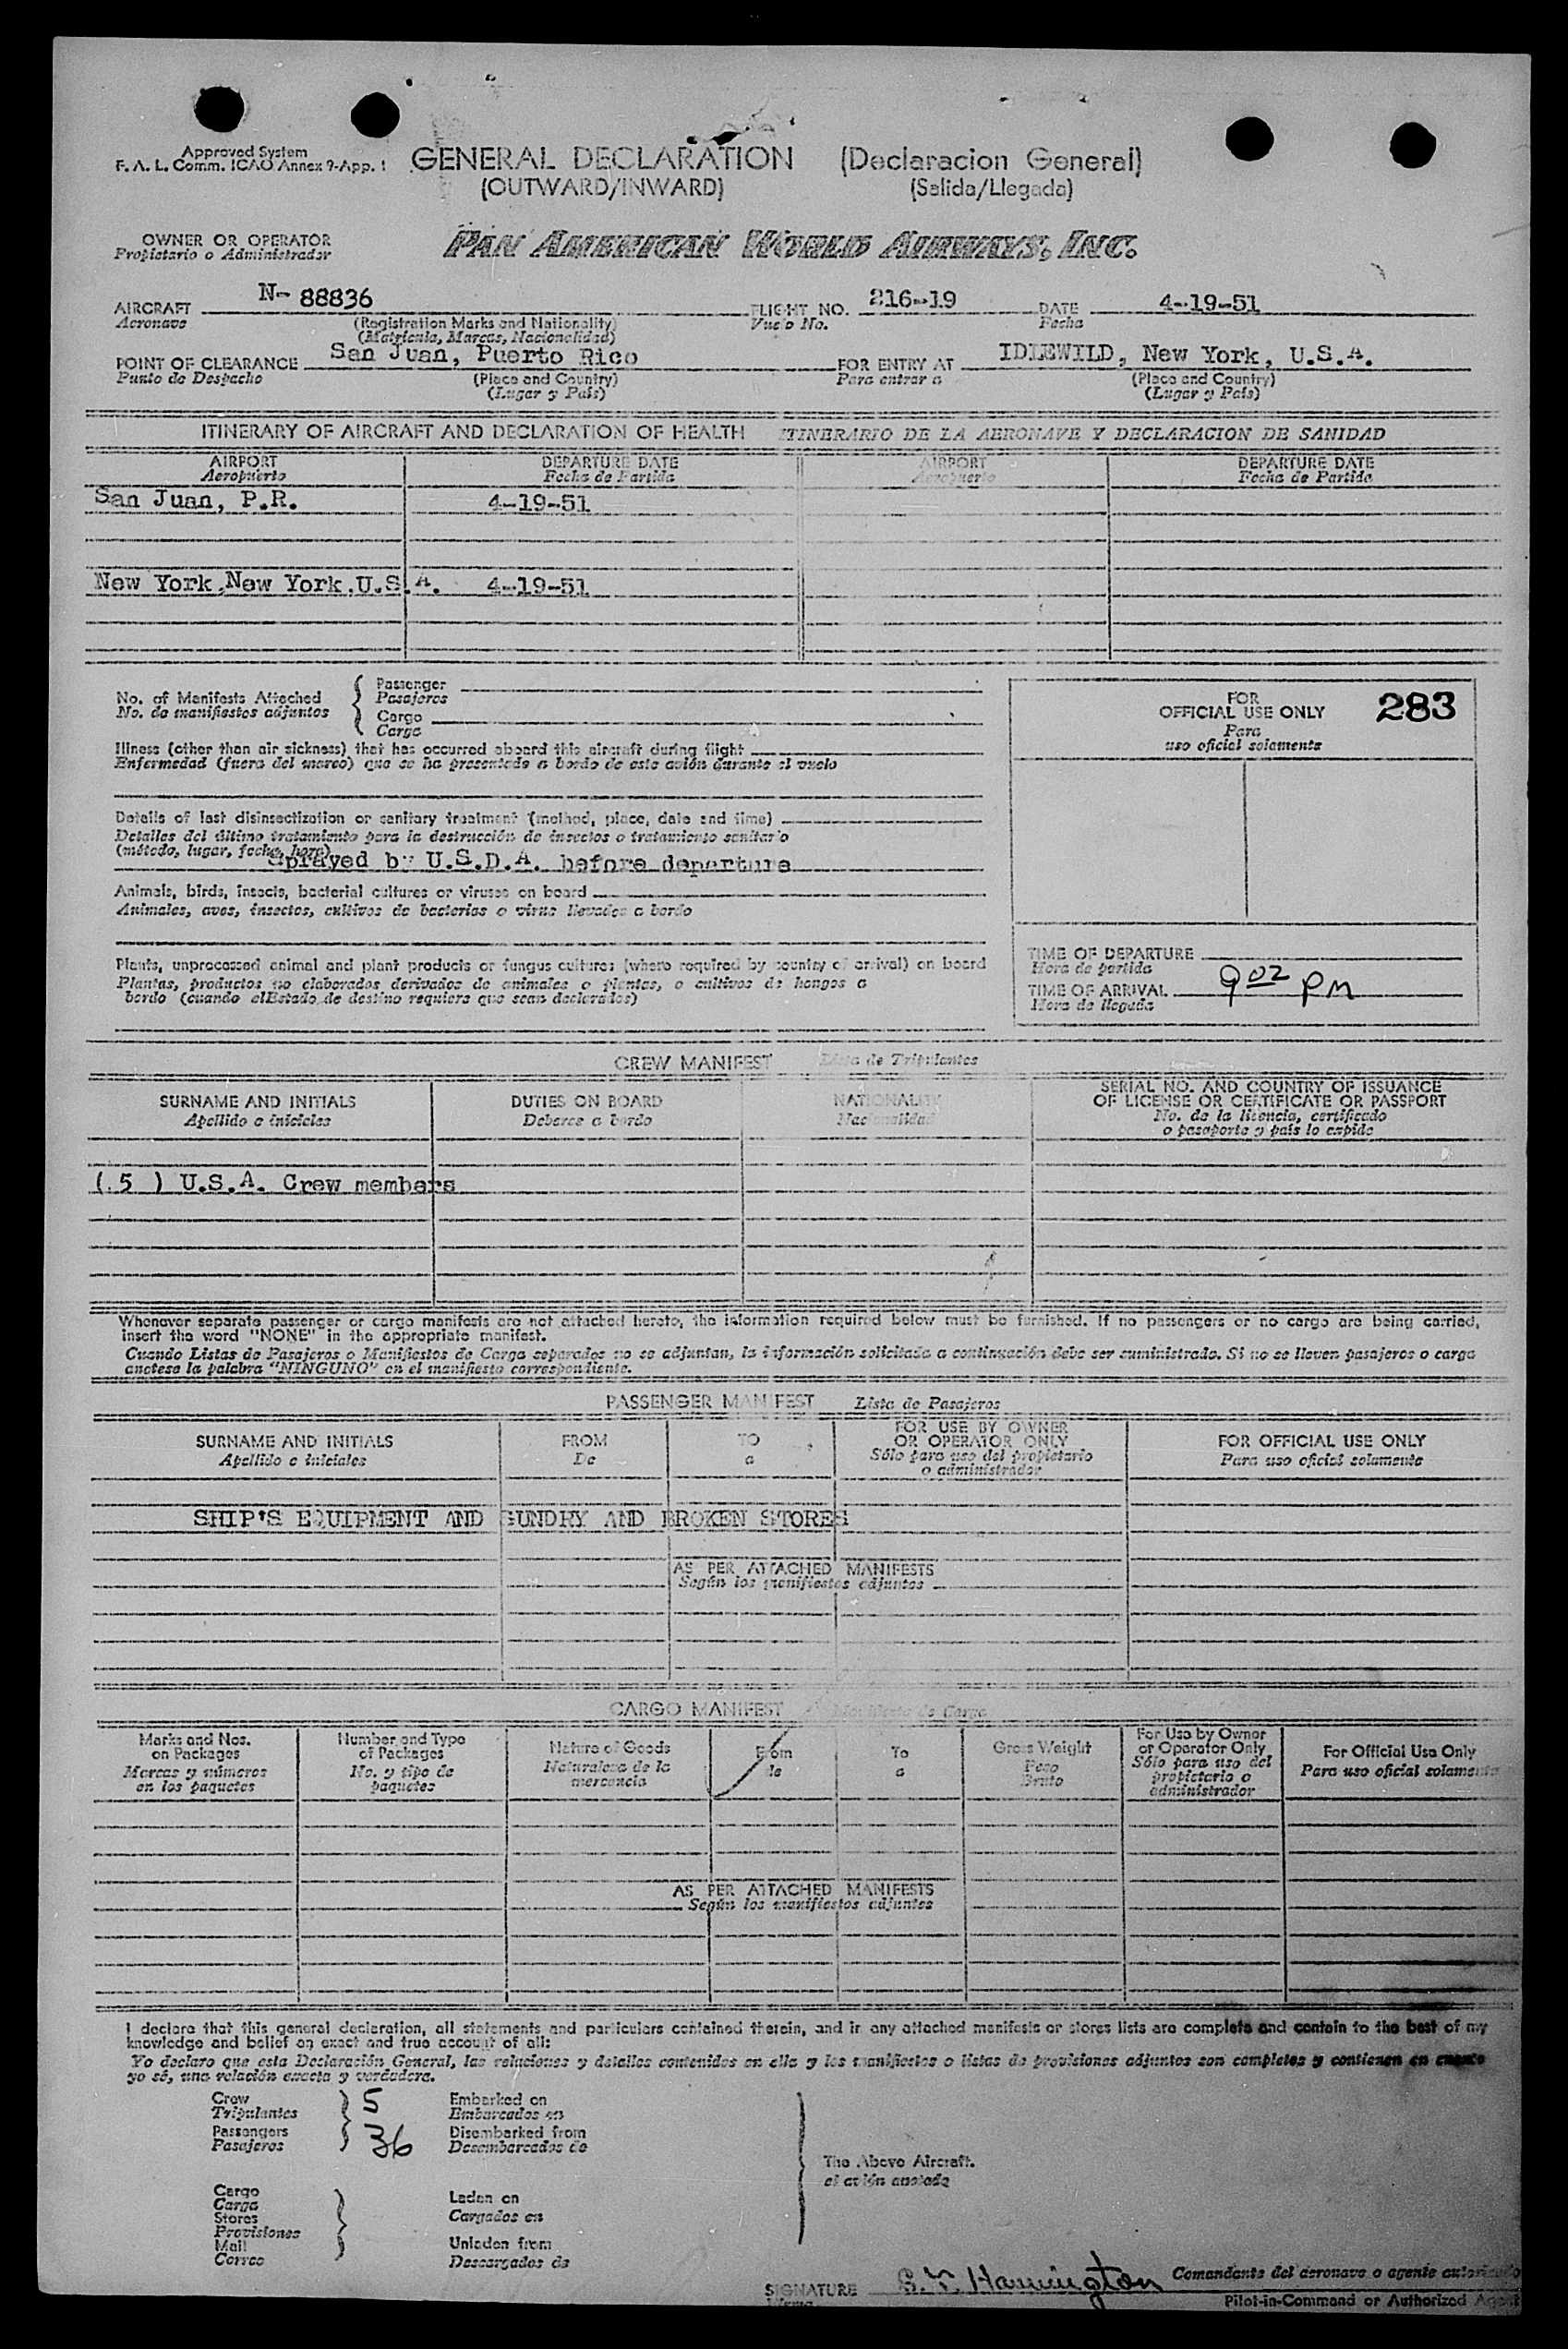 Approved System
F. A. L. Comm. ICAO Annex 9-App. 1
GENERAL DECLARATION (Declaracion General)
(OUTWARD/INWARD) (Salida/Llegada)
OWNER OR OPERATOR
Propietario o Administrador
PAN AMERICAN WORLD AIRWAYS, INC.
AIRCRAFT N-88836 FLIGHT NO. 216-19 DATE 4-19-51
Aeronave (Registration Marks and Nationality) Vuelo No. Fecha
(Matricula, Marcas, Nacionalidad)
POINT OF CLEARANCE San Juan, Puerto Rico FOR ENTRY AT IDLEWILD, New York, U.S.A.
Punto de Despacho (Place and Country) Para entrar a (Place and Country)
(Lugar y País) (Lugar y País)
ITINERARY OF AIRCRAFT AND DECLARATION OF HEALTH ITINERARIO DE LA AERONAVE Y DECLARACION DE SANIDAD
AIRPORT DEPARTURE DATE AIRPORT DEPARTURE DATE
Aeropuerto Fecha de Partida Aeropuerto Fecha de Partida
San Juan, P.R. 4-19-51
New York,New York,U.S.A. 4-19-51
No. of Manifests Attached
No. de manifiestos adjuntos
Passenger
Pasajeros
Cargo
Carga
FOR
OFFICIAL USE ONLY 283
Para
uso oficial solamente
Illness (other than air sickness) that has occurred aboard this aircraft during flight
Enfermedad (fuera del mareo) que se ha presentado a bordo de este avión durante el vuelo
Details of last disinsectization or sanitary treatment (method, place, date and time)
Detalles del último tratamiento para la destrucción de insectos o tratamiento sanitario
(método, lugar, fecha, hora)
Sprayed by U.S.D.A. before departure
Animals, birds, insects, bacterial cultures or viruses on board
Animales, aves, insectos, cultivos de bacterias o virus llevados a bordo
Plants, unprocessed animal and plant products or fungus cultures (where required by country of arrival) on board
Plantas, productos no elaborados derivados de animales o plantas, o cultivos de hongos a
bordo (cuando elEstado de destino requiera que sean declarados)
TIME OF DEPARTURE
Hora de partida
TIME OF ARRIVAL 9 02 PM
Hora de llegada
CREW MANIFEST Lista de Tripulantes
SURNAME AND INITIALS DUTIES ON BOARD NATIONALITY SERIAL NO. AND COUNTRY OF ISSUANCE
OF LICENSE OR CERTIFICATE OR PASSPORT
Apellido e iniciales Deberes a bordo Nacionalidad No. de la licencia, certificado
o pasaporte y país lo expide
( 5 ) U.S.A. Crew members
Whenever separate passenger or cargo manifests are not attached hereto, the information required below must be furnished. If no passengers or no cargo are being carried,
insert the word "NONE" in the appropriate manifest.
Cuando Listas de Pasajeros o Manifiestos de Carga separados no se adjuntan, la información solicitada a continuación debe ser suministrada. Si no se llevan pasajeros o carga
anotese la palabra "NINGUNO" en el manifiesto correspondiente.
PASSENGER MANIFEST Lista de Pasajeros
SURNAME AND INITIALS FROM TO FOR USE BY OWNER
OR OPERATOR ONLY FOR OFFICIAL USE ONLY
Apellido e iniciales De a Sólo para uso del propietario
o administrador Para uso oficial solamente
SHIP'S EQUIPMENT AND SUNDRY AND BROKEN STORES
AS PER ATTACHED MANIFESTS
Según los manifiestos adjuntos
CARGO MANIFEST Manifiesto de Carga
Marks and Nos.
on Packages
Marcas y números
en los paquetes
Number and Type
of Packages
No. y tipo de
paquetes
Nature of Goods
Naturaleza de la
mercancia
From
de
To
a
Gross Weight
Peso
Bruto
For Use by Owner
or Operator Only
Sólo para uso del
propietario o
administrador
For Official Use Only
Para uso oficial solamente
AS PER ATTACHED MANIFESTS
Según los manifiestos adjuntos
I declare that this general declaration, all statements and particulars contained therein, and in any attached manifests or stores lists are complete and contain to the best of my
knowledge and belief an exact and true account of all:
Yo declaro que esta Declaración General, las relaciones y detalles contenidos en ella y los manifiestos o listas de provisiones adjuntos son completos y contienen en cuanto
yo sé, una relación exacta y verdadera.
Crew 5 Embarked on
Tripulantes Embarcados en
Passengers 36 Disembarked from
Pasajeros Desembarcados de
The Above Aircraft.
el avión anotado
Cargo
Carga
Stores
Provisiones
Mail
Correo
Laden on
Cargados en
Unladen from
Descargados de
SIGNATURE Harrington Comandante del aeronave o agente autorizado
Firma Pilot-in-Command or Authorized Agent